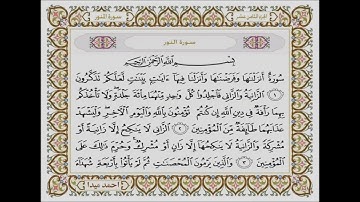 الجزء الثامن عشر
سورة النور
سورة النور
بِسْمِ اللَّهِ الرَّحْمَٰنِ الرَّحِيمِ
سُورَةٌ أَنزَلْنَاهَا وَفَرَضْنَاهَا وَأَنزَلْنَا فِيهَا آيَاتٍ بَيِّنَاتٍ لَّعَلَّكُمْ تَذَكَّرُونَ
١ الزَّانِيَةُ وَالزَّانِي فَاجْلِدُوا كُلَّ وَاحِدٍ مِّنْهُمَا مِائَةَ جَلْدَةٍ وَلَا تَأْخُذْكُم
بِهِمَا رَأْفَةٌ فِي دِينِ اللَّهِ إِن كُنتُمْ تُؤْمِنُونَ بِاللَّهِ وَالْيَوْمِ الْآخِرِ وَلْيَشْهَدْ
عَذَابَهُمَا طَائِفَةٌ مِّنَ الْمُؤْمِنِينَ ٢ الزَّانِي لَا يَنكِحُ إِلَّا زَانِيَةً أَوْ
مُشْرِكَةً وَالزَّانِيَةُ لَا يَنكِحُهَا إِلَّا زَانٍ أَوْ مُشْرِكٌ وَحُرِّمَ ذَٰلِكَ عَلَى
الْمُؤْمِنِينَ ٣ وَالَّذِينَ يَرْمُونَ الْمُحْصَنَاتِ ثُمَّ لَمْ يَأْتُوا بِأَرْبَعَةِ شُهَدَاءَ